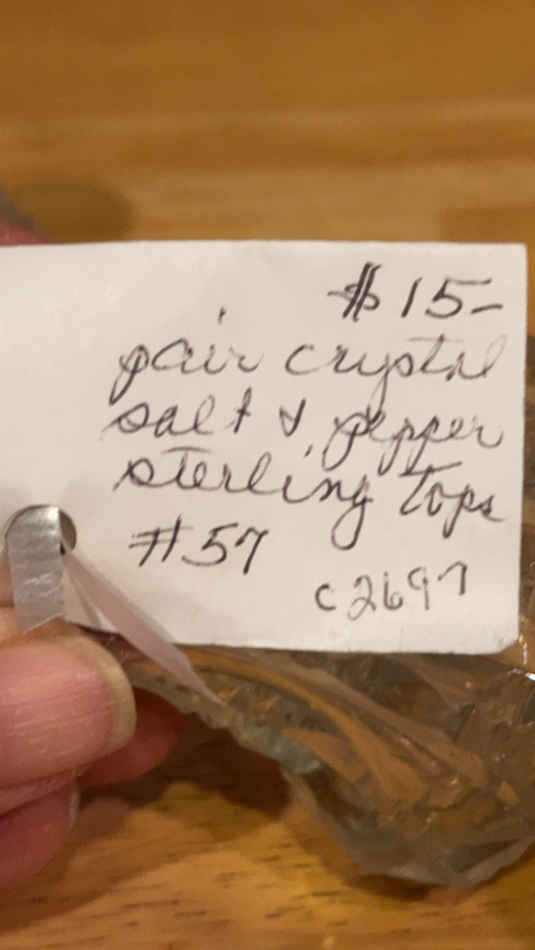 $15-
pair crystal
salt & pepper
sterling tops
#57
c2697